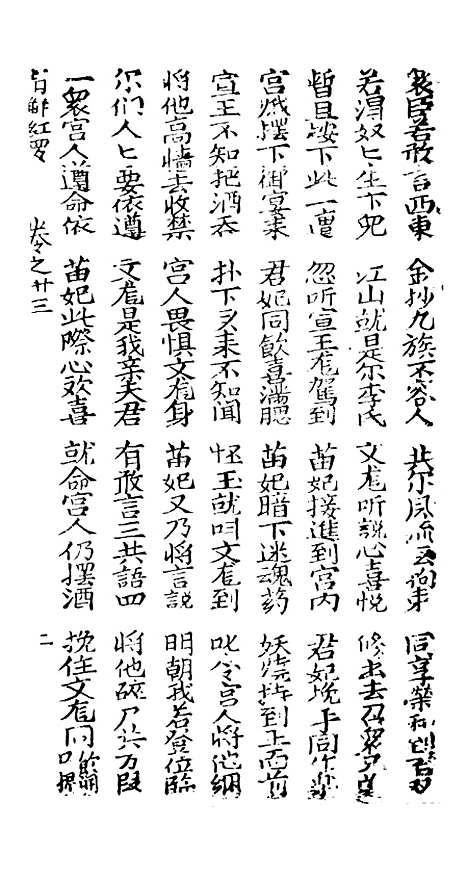 衆臣若敢言西東 金抄九族不容人 共尔風流云雨事 同享榮和到百
若淂奴匕生下兒 江山就是尔李氏 文龙听説心喜悦 修書去召衆
暫且按下此一 忽听宣王龙駕到 苗妃接進到宮内 君妃挽手同作樂
宮娥擺下御宴来 君妃同飲喜滿腮 苗妃暗下迷魂药 妖嬈持到王面前
宣王不知把酒吞 扑下来不知闻 怪王就叫文龙到 叱令宮人将他綑
将他高墻去收禁 宮人畏惧文龙身 苗妃又乃将言説 明朝我若登位臨
尔们人匕要依遵 文龙是我亲夫君 有敢言三共語四 将他碎乃共万段
一衆宮人遵命依 苗妃此際心欢喜 就命宮人仍擺酒 挽住文龙同
背解紅罗 卷之廿三 二